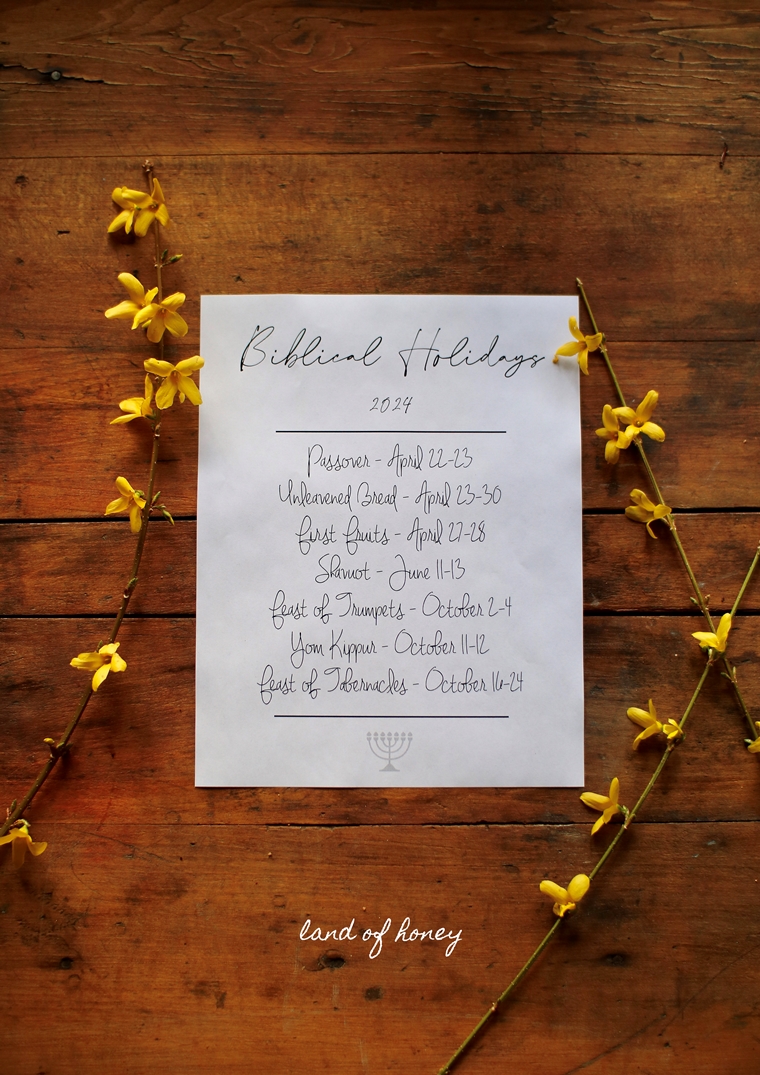 Biblical Holidays
2024
Passover - April 22-23
Unleavened Bread - April 23-30
First Fruits - April 27-28
Shavuot - June 11-13
Feast of Trumpets - October 2-4
Yom Kippur - October 11-12
Feast of Tabernacles - October 16-24
land of honey